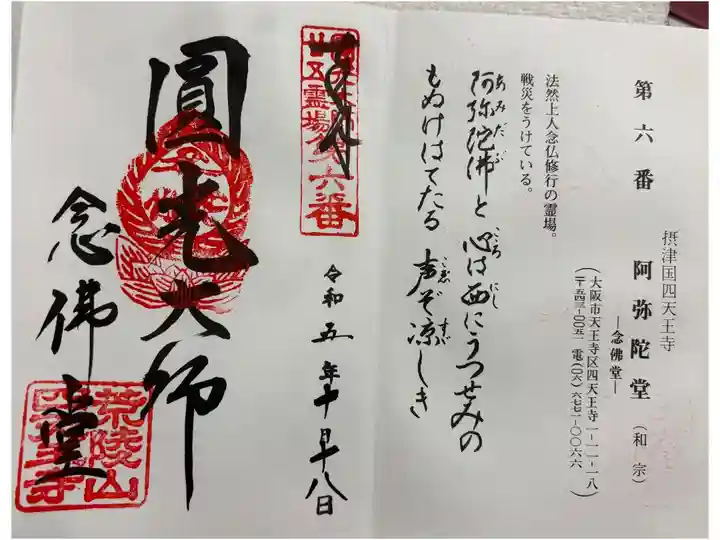 第六番
摂津国四天王寺
阿弥陀堂（和宗）
―念佛堂―
（大阪市天王寺区四天王寺一-一一-一八
〒五四三-〇〇五一 電（〇六）六七七一-〇〇六六）
法然上人念仏修行の霊場。
戦災をうけている。
阿弥陀佛と 心は西にうつせみの
あみだぶ こころ にし
もぬけはてたる 声ぞ凉しき
こゑ すゞ
奉拝
廿五霊場第六番
令和五年十月十八日
圓光大師
念佛堂
荒陵山
四天王寺